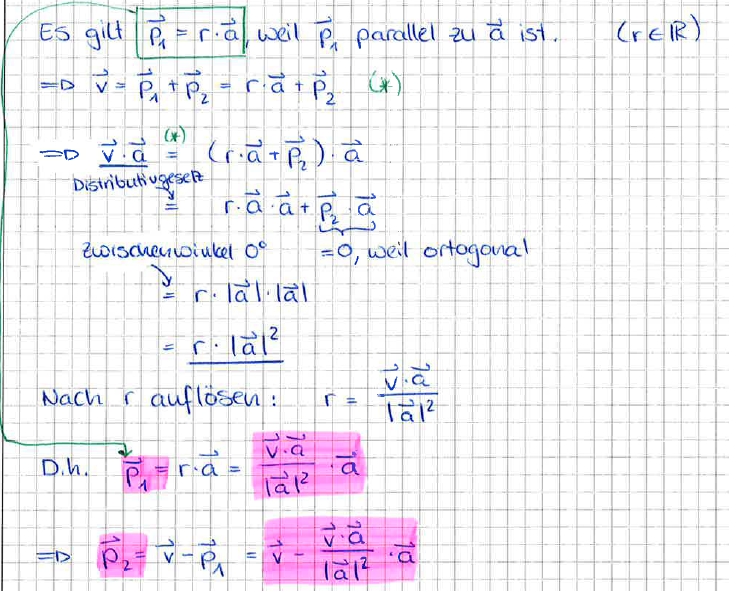 Es gilt p⃗₁ = r · a⃗, weil p⃗₁ parallel zu a⃗ ist. (r ∈ ℝ)
⇒ v⃗ = p⃗₁ + p⃗₂ = r · a⃗ + p⃗₂ (*)
⇒ v⃗ · a⃗ (*) = (r · a⃗ + p⃗₂) · a⃗
Distributivgesetz
= r · a⃗ · a⃗ + p⃗₂ · a⃗
Zwischenwinkel 0° =0, weil ortogonal
= r · |a⃗| · |a⃗|
= r · |a⃗|²
Nach r auflösen: r = (v⃗ · a⃗)/|a⃗|²
D.h. p⃗₁ = r · a⃗ = (v⃗ · a⃗)/|a⃗|² · a⃗
⇒ p⃗₂ = v⃗ − p⃗₁ = v⃗ − (v⃗ · a⃗)/|a⃗|² · a⃗